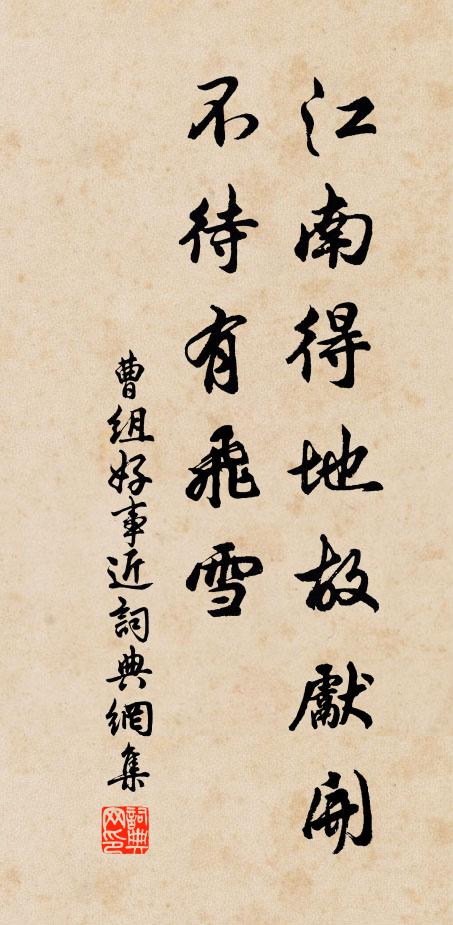 江南得地故獻開
不待有飛雪
曹組好事近詞典網集
詞典网印